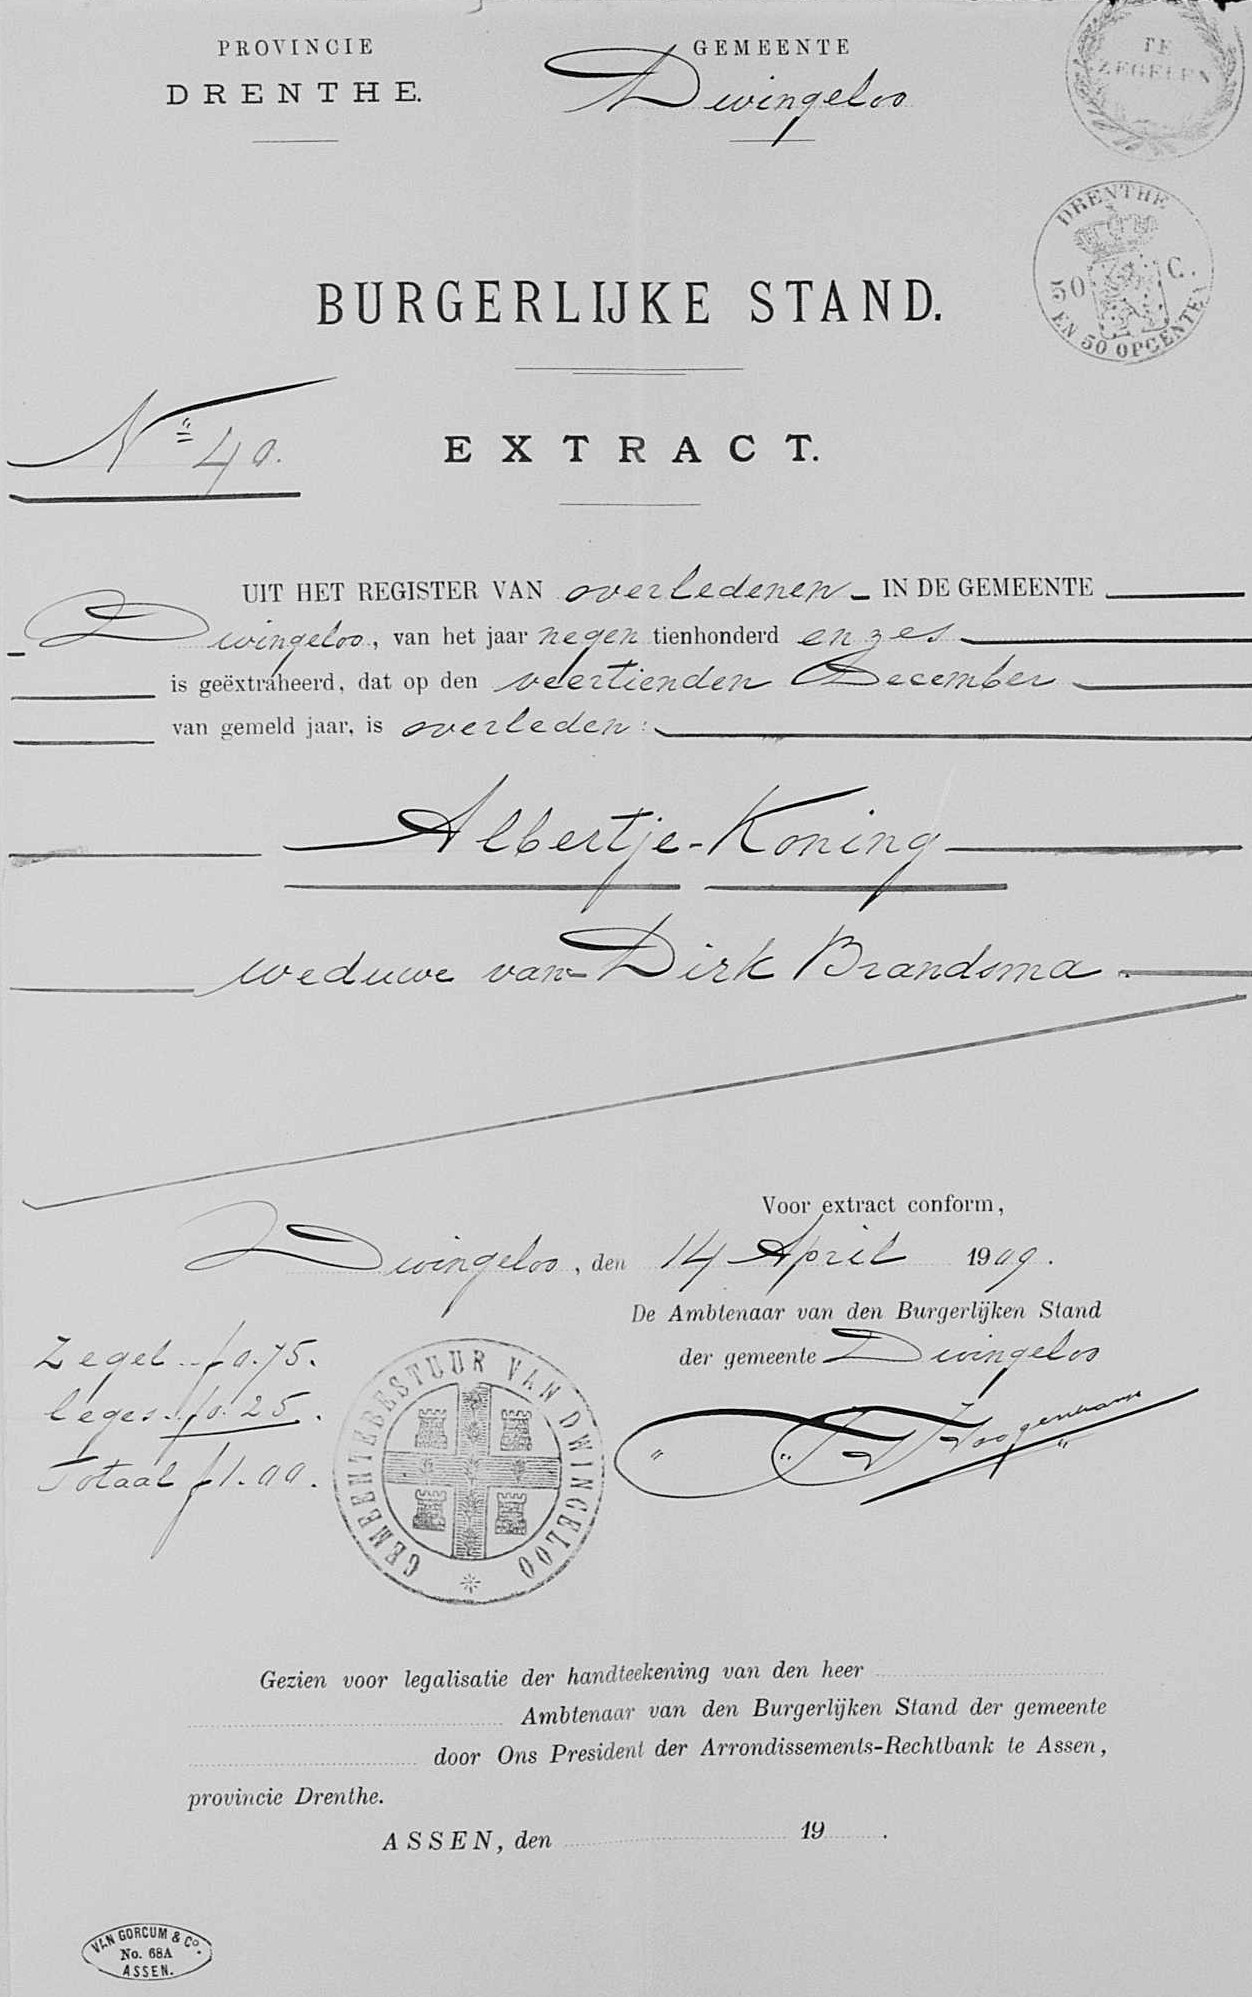 PROVINCIE
DRENTHE.
GEMEENTE
Dwingeloo
TE
ZEGELEN
DRENTHE
50 C.
EN 50 OPCENTEN
BURGERLIJKE STAND.
No 40.
EXTRACT.
UIT HET REGISTER VAN overledenen IN DE GEMEENTE
Dwingeloo, van het jaar negen tienhonderd en zes
is geëxtraheerd, dat op den veertienden December
van gemeld jaar, is overleden:
Albertje Koning
weduwe van Dirk Brandsma.
Voor extract conform,
Dwingeloo, den 14 April 1909.
De Ambtenaar van den Burgerlijken Stand
der gemeente Dwingeloo
Zegel f 0.75.
leges f 0.25.
Totaal f 1.00.
GEMEENTEBESTUUR VAN DWINGELOO
Gezien voor legalisatie der handteekening van den heer
Ambtenaar van den Burgerlijken Stand der gemeente
door Ons President der Arrondissements-Rechtbank te Assen,
provincie Drenthe.
ASSEN, den 19 .
VAN GORCUM & Co.
No. 68A
ASSEN.